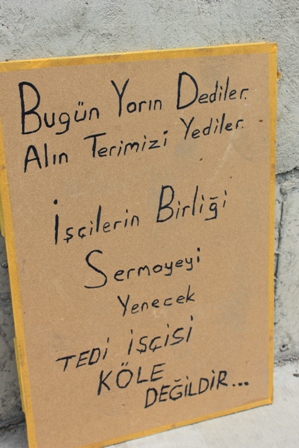 Bugün Yarın Dediler.
Alın Terimizi Yediler.
İşçilerin Birliği
Sermayeyi
Yenecek
TEDİ İŞÇİSİ
KÖLE
DEĞİLDİR...